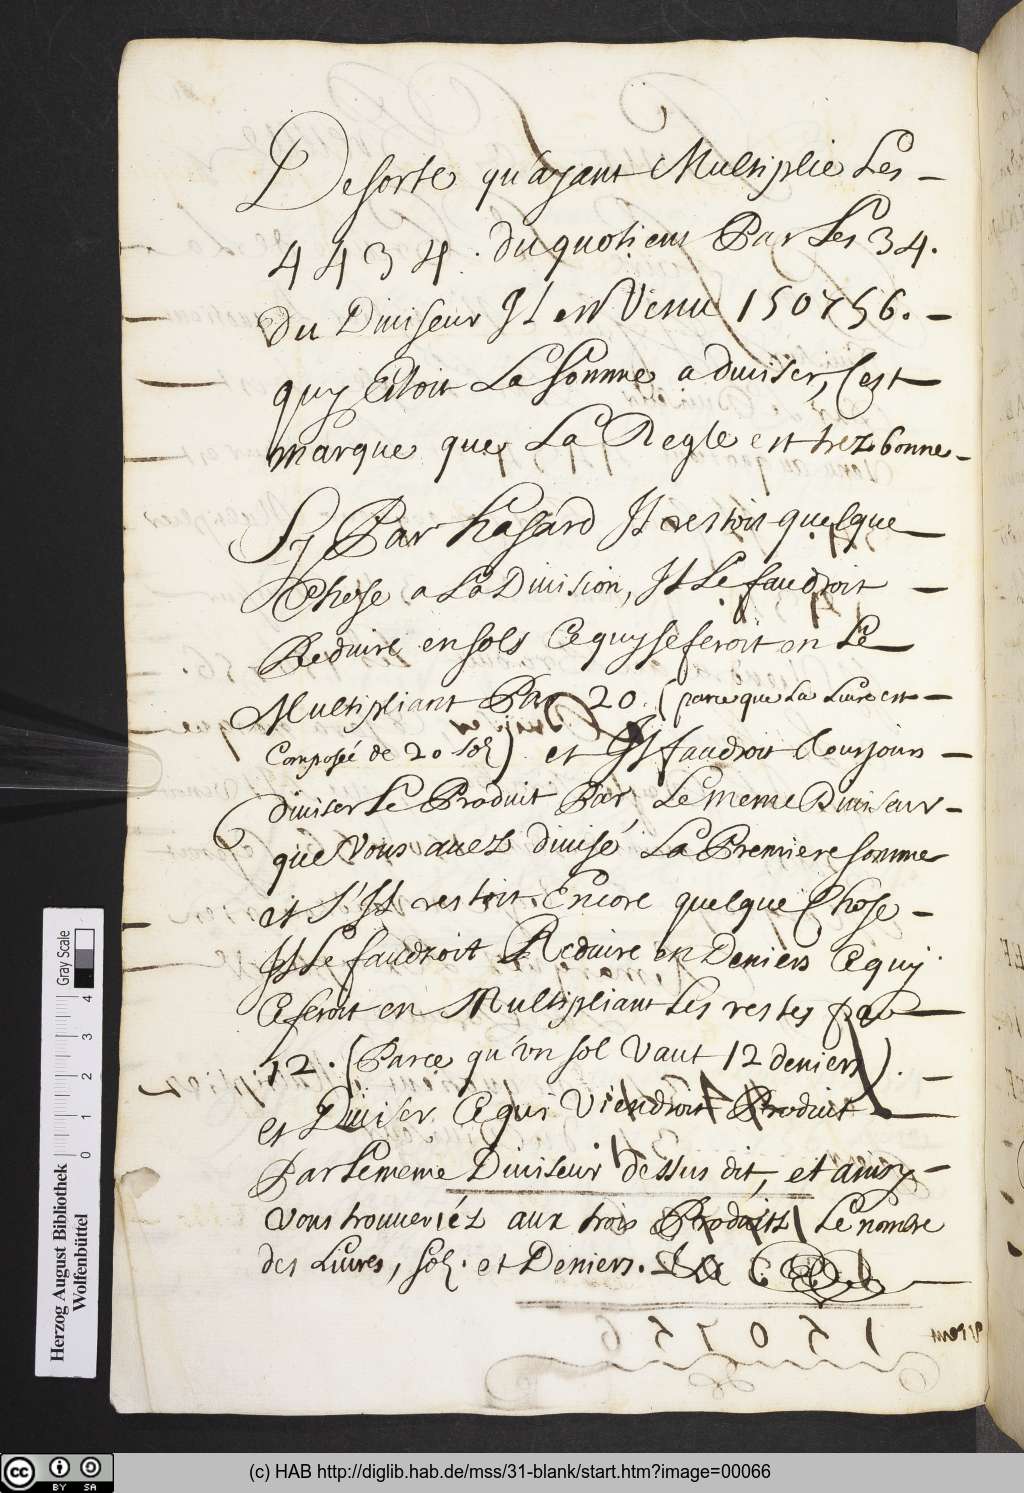 De sorte qu'ayant Multiplie Les
4434. du quotiens Par Les 34.
du Diuiseur Jl est Venu 150756.
quy Estoit La Somme a diuiser, C'est
marque que La Regle est trez bonne
Sy Par hasard Jl restoit quelque
Chose a La Diuision, Jl Le faudroit
Reduire en sols Ce quy se feroit en Le
Multipliant Par 20 (parce que La Liure est
Composée de 20 sol) et Jl faudroit toursjours
diuiser Le Produit Par Le meme Diuiseur
que Vous auez diuisé La Premiere somme
et s'Jl restoit Encore quelque Chose
Jl Le faudroit Reduire en Deniers Ce quy
Ce feroit en Multipliant Les restes par
12. (Parce qu'vn sol Vaut 12 deniers).
et Diuiser Ce qui Viendroit Produit
Par Le meme Diuiseur dessus dit, et ainsy
Vous trouueriéz aux trois Produits Le nombre
des Liures, sol. et Deniers.
Herzog August Bibliothek
Wolfenbüttel
Gray Scale
0 1 2 3 4
(c) HAB http://diglib.hab.de/mss/31-blank/start.htm?image=00066
cc BY SA